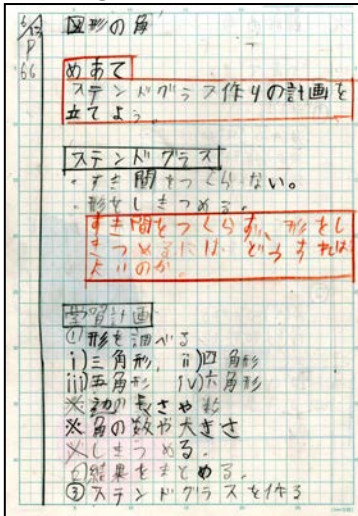 6/13
P
66
図形の角
めあて
ステンドグラス作りの計画を
立てよう。
ステンドグラス
・すき間をつくらない。
・形をしきつめる。
すき間をつくらず、形をし
きつめるには、どうすれば
よいのか。
学習計画
①形を調べる
i)三角形, ii)四角形
iii)五角形 iv)六角形
※辺の長さや数
※角の数や大きさ
※しきつめる。
②結果をまとめる。
③ステンドグラスを作る